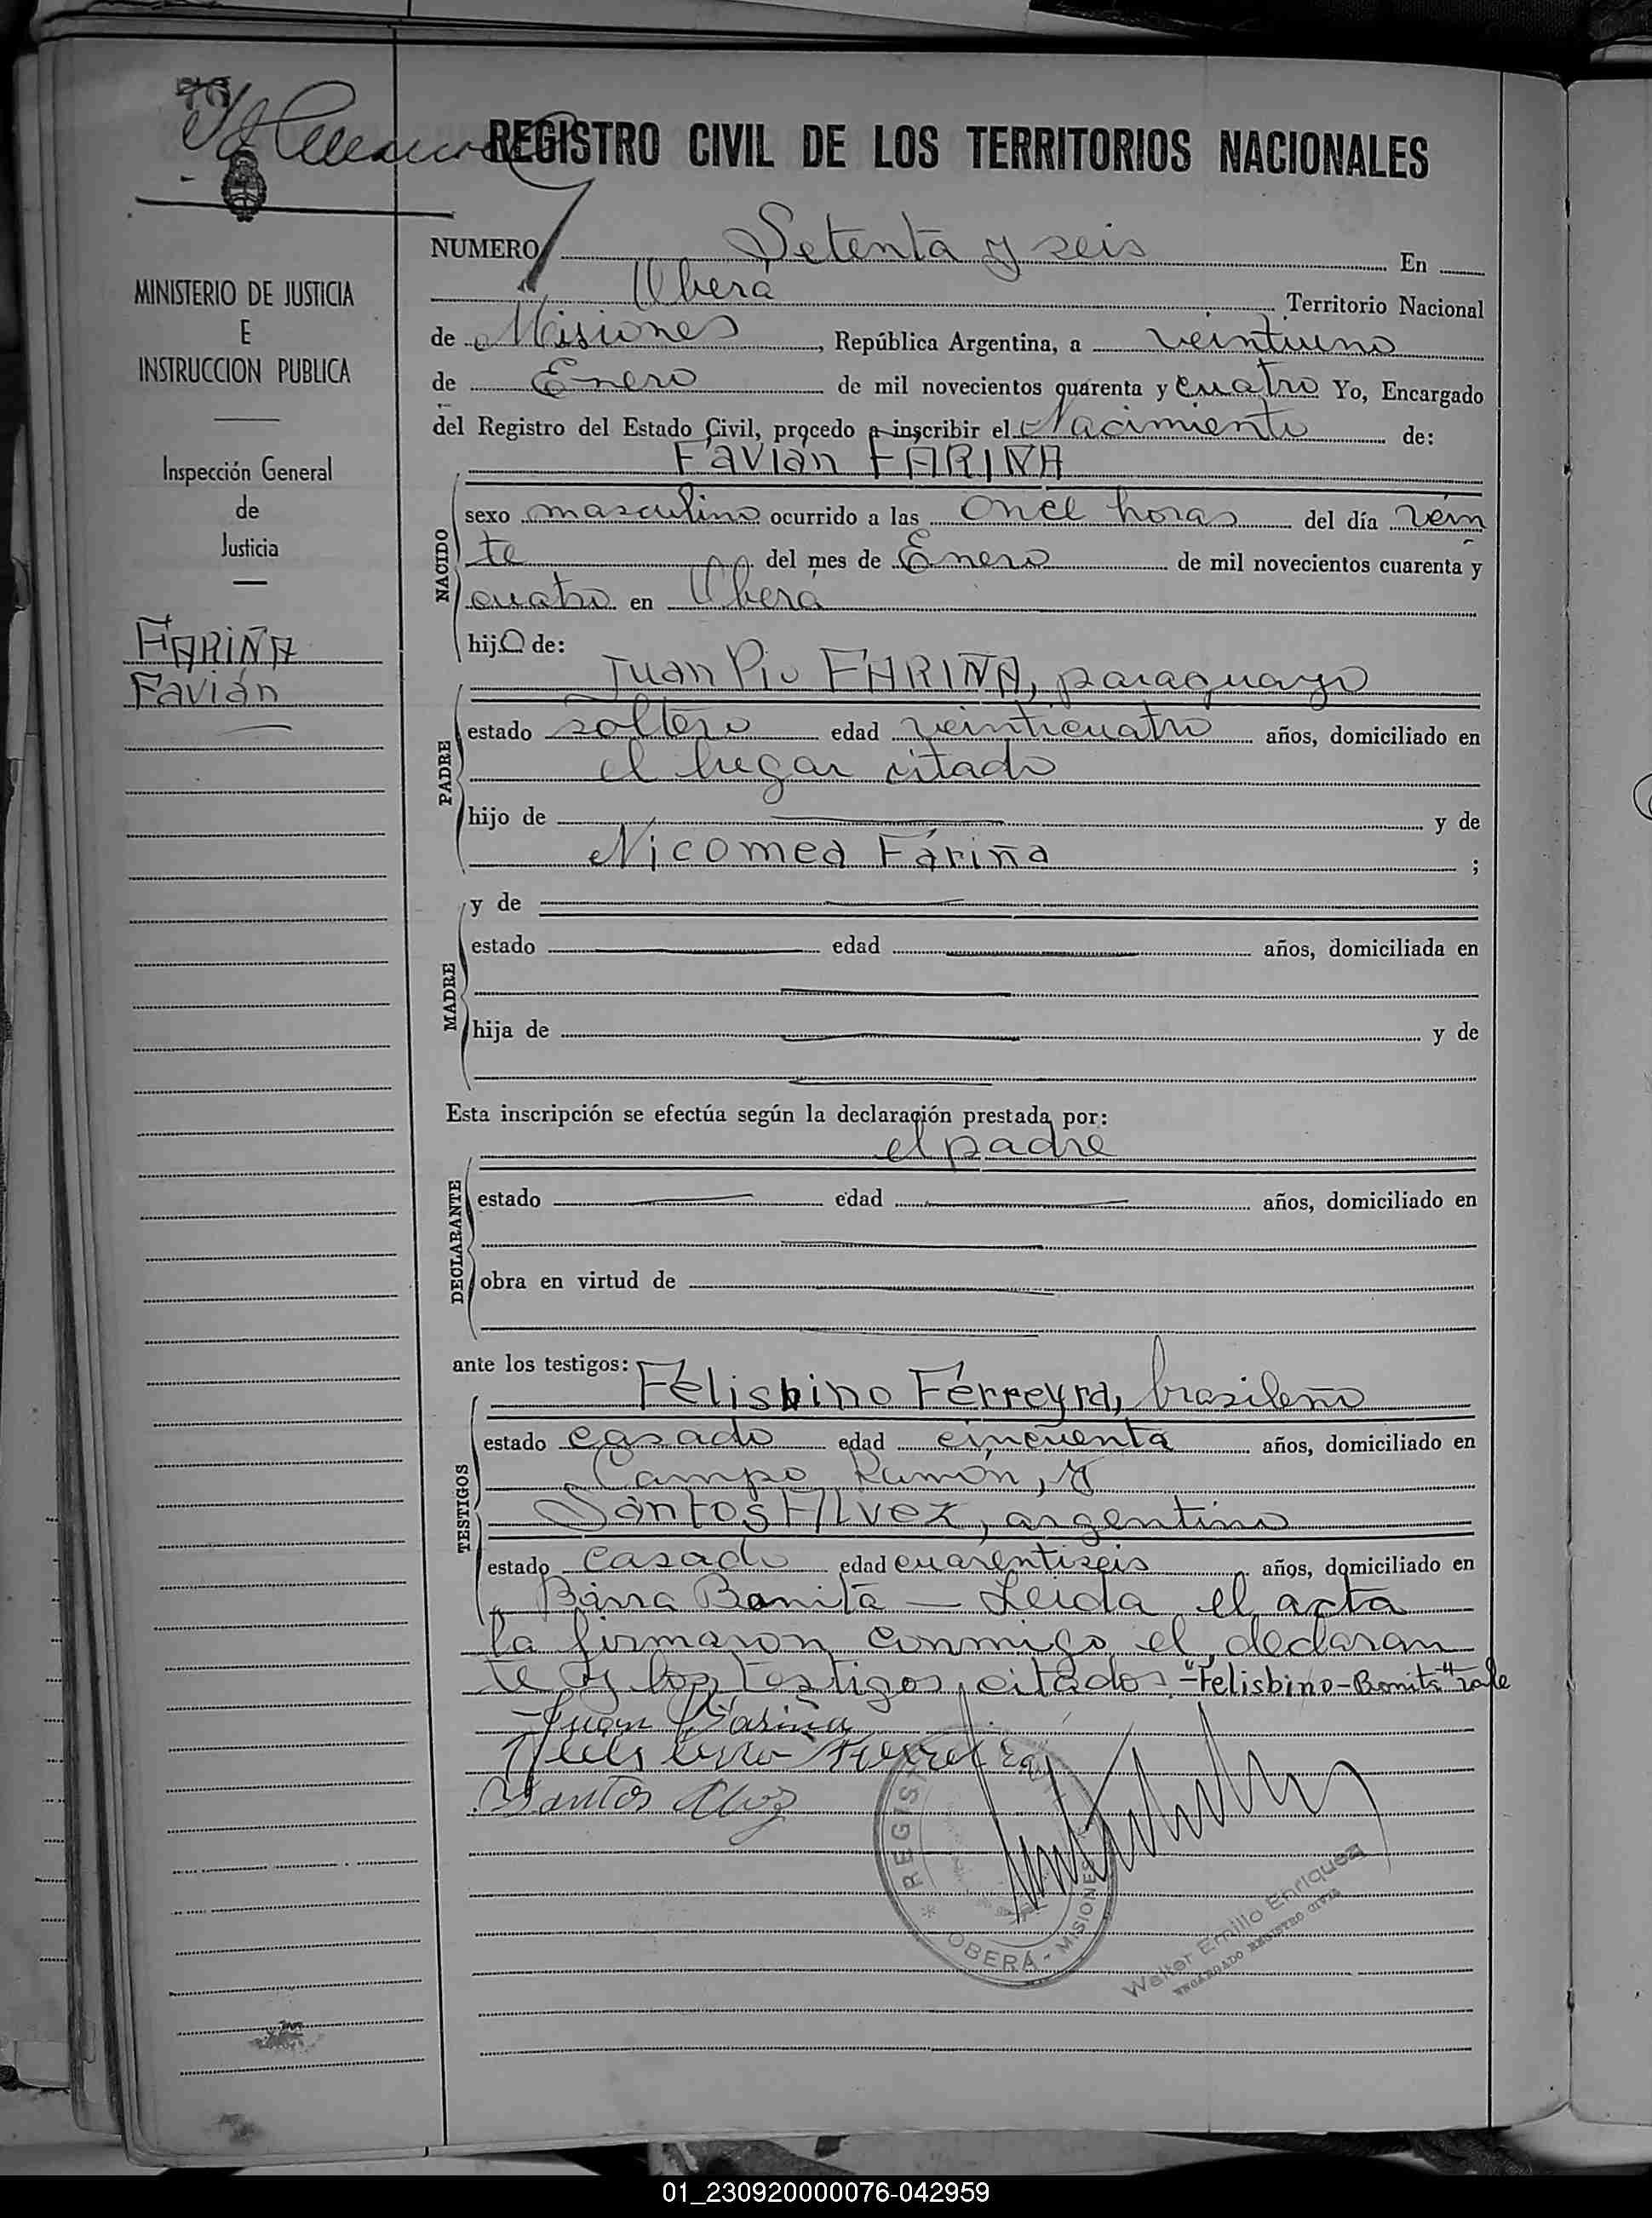 REGISTRO CIVIL DE LOS TERRITORIOS NACIONALES
MINISTERIO DE JUSTICIA
E
INSTRUCCION PUBLICA
Inspección General
de
Justicia
FARIÑA
Favián
NUMERO Setenta y seis En
Oberá Territorio Nacional
de Misiones, República Argentina, a veintiuno
de Enero de mil novecientos cuarenta y cuatro Yo, Encargado
del Registro del Estado Civil, procedo a inscribir el Nacimiento de:
Favián FARIÑA
NACIDO
sexo masculino ocurrido a las once horas del día vein
te del mes de Enero de mil novecientos cuarenta y
cuatro en Oberá
hijo de:
Juan Pio FARIÑA, paraguayo
PADRE
estado soltero edad veinticuatro años, domiciliado en
el lugar citado
hijo de y de
Nicomea Fariña ;
MADRE
y de
estado edad años, domiciliada en
hija de y de
Esta inscripción se efectúa según la declaración prestada por:
el padre
DECLARANTE
estado edad años, domiciliado en
obra en virtud de
ante los testigos:
Felisbino Ferreyra, brasileño
TESTIGOS
estado casado edad cincuenta años, domiciliado en
Campo Ramón, y
Santos Alvez, argentino
estado casado edad cuarentiseis años, domiciliado en
Barra Bonita — Leida el acta
la firmaron conmigo el declaran
te y los testigos citados -"Felisbino-Bonita" vale
Juan Fariña
Felisbino Ferreira
Santos Alvez
REGIS
OBERÁ - MISIONES
Walter Emilio Enriquez
ENCARGADO REGISTRO CIVIL
01_230920000076-042959